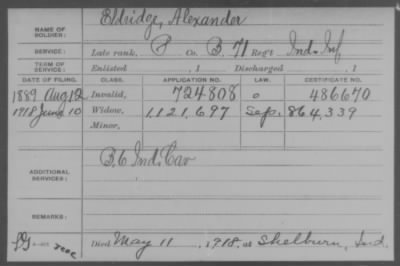 NAME OF SOLDIER: Eldridge, Alexander
SERVICE: Late rank, P Co. B, 71 Reg't Ind. Inf
TERM OF SERVICE: Enlisted , 1 Discharged , 1
DATE OF FILING. CLASS. APPLICATION NO. LAW. CERTIFICATE NO.
1889 Aug 12 Invalid, 724808 486670
1918 June 10 Widow, 1,121,697 Sep. 864,339
Minor,
B. 6 Ind. Cav
ADDITIONAL SERVICES:
REMARKS:
Died May 11, 1918, at Shelburn, Ind.